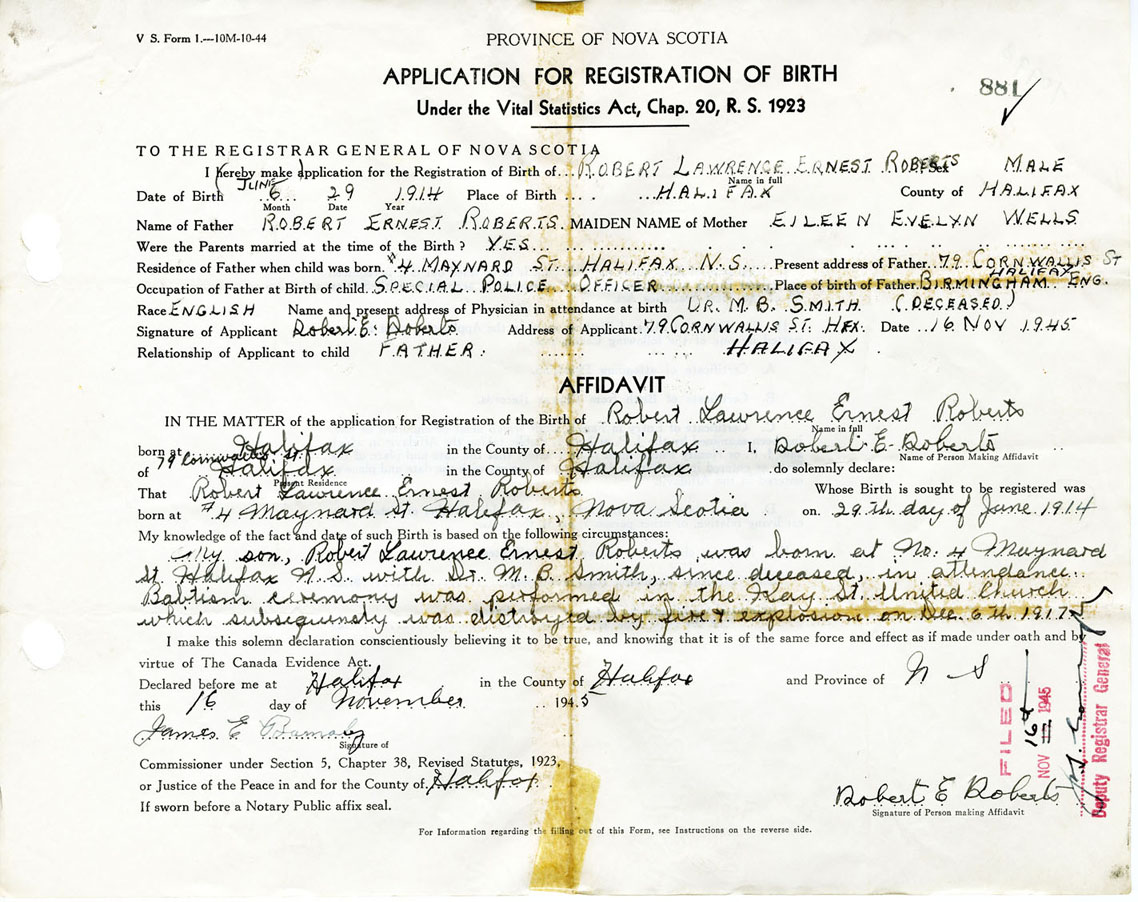 V S. Form 1.---10M-10-44
PROVINCE OF NOVA SCOTIA
APPLICATION FOR REGISTRATION OF BIRTH
881
Under the Vital Statistics Act, Chap. 20, R. S. 1923
TO THE REGISTRAR GENERAL OF NOVA SCOTIA
I (hereby make) application for the Registration of Birth of... ROBERT LAWRENCE ERNEST ROBERTS Sex MALE
Name in full
JUNE
Date of Birth 6 29 1914 Place of Birth HALIFAX County of HALIFAX
Month Date Year
Name of Father ROBERT ERNEST ROBERTS MAIDEN NAME of Mother EILEEN EVELYN WELLS
Were the Parents married at the time of the Birth? YES
Residence of Father when child was born #4 MAYNARD ST. HALIFAX N.S. Present address of Father 79 CORNWALLIS ST
HALIFAX
Occupation of Father at Birth of child. SPECIAL POLICE OFFICER Place of birth of Father. BIRMINGHAM ENG.
Race ENGLISH Name and present address of Physician in attendance at birth DR. M. B. SMITH (DECEASED)
Signature of Applicant Robert E. Roberts Address of Applicant. 79 CORNWALLIS ST. HFX. Date 16 NOV 1945
Relationship of Applicant to child FATHER. HALIFAX
AFFIDAVIT
IN THE MATTER of the application for Registration of the Birth of Robert Lawrence Ernest Roberts
Name in full
born at Halifax in the County of Halifax I, Robert E. Roberts
Name of Person Making Affidavit
79 Cornwallis St.
of Halifax in the County of Halifax do solemnly declare:
Present Residence
That Robert Lawrence Ernest Roberts Whose Birth is sought to be registered was
born at #4 Maynard St. Halifax, Nova Scotia on. 29th day of June 1914
My knowledge of the fact and date of such Birth is based on the following circumstances:
My son, Robert Lawrence Ernest Roberts was born at No. 4 Maynard
St. Halifax N.S. with Dr. M. B. Smith, since deceased, in attendance.
Babtism ceremony was performed in the Kay St. United Church
which subsequinty was distroyed by fire & explosion on Dec. 6th 1917
I make this solemn declaration conscientiously believing it to be true, and knowing that it is of the same force and effect as if made under oath and by
virtue of The Canada Evidence Act.
Declared before me at Halifax in the County of Halifax and Province of N S
this 16 day of November 1945
James E
Signature of
Commissioner under Section 5, Chapter 38, Revised Statutes, 1923,
or Justice of the Peace in and for the County of Halifax
If sworn before a Notary Public affix seal.
Robert E Roberts
Signature of Person making Affidavit
FILED
16th
NOV 1945
Deputy Registrar General
For Information regarding the filling out of this Form, see Instructions on the reverse side.